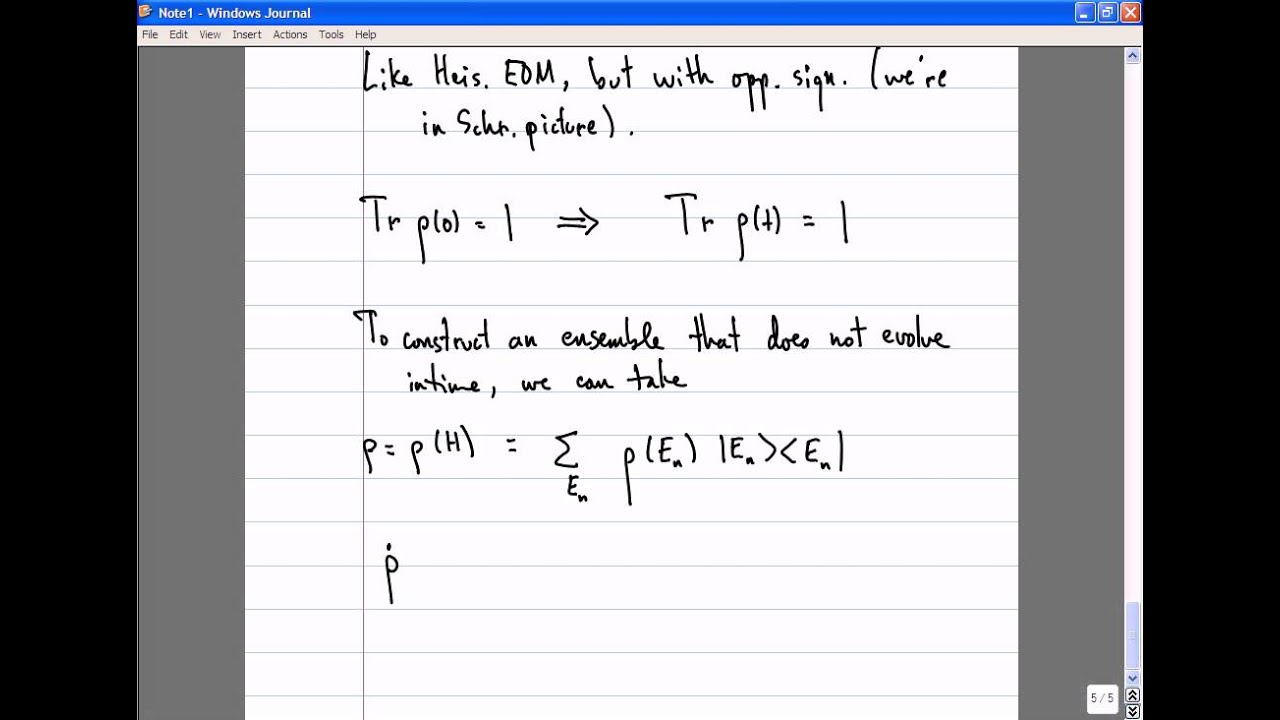 Note1 - Windows Journal
File Edit View Insert Actions Tools Help
Like Heis. EOM, but with opp. sign. (we're
in Schr. picture).
Tr ρ(0) = 1 ⇒ Tr ρ(t) = 1
To construct an ensemble that does not evolve
in time, we can take
ρ = ρ(H) = Σ ρ(Eₙ) |Eₙ><Eₙ|
Eₙ
ρ̇
5 / 5